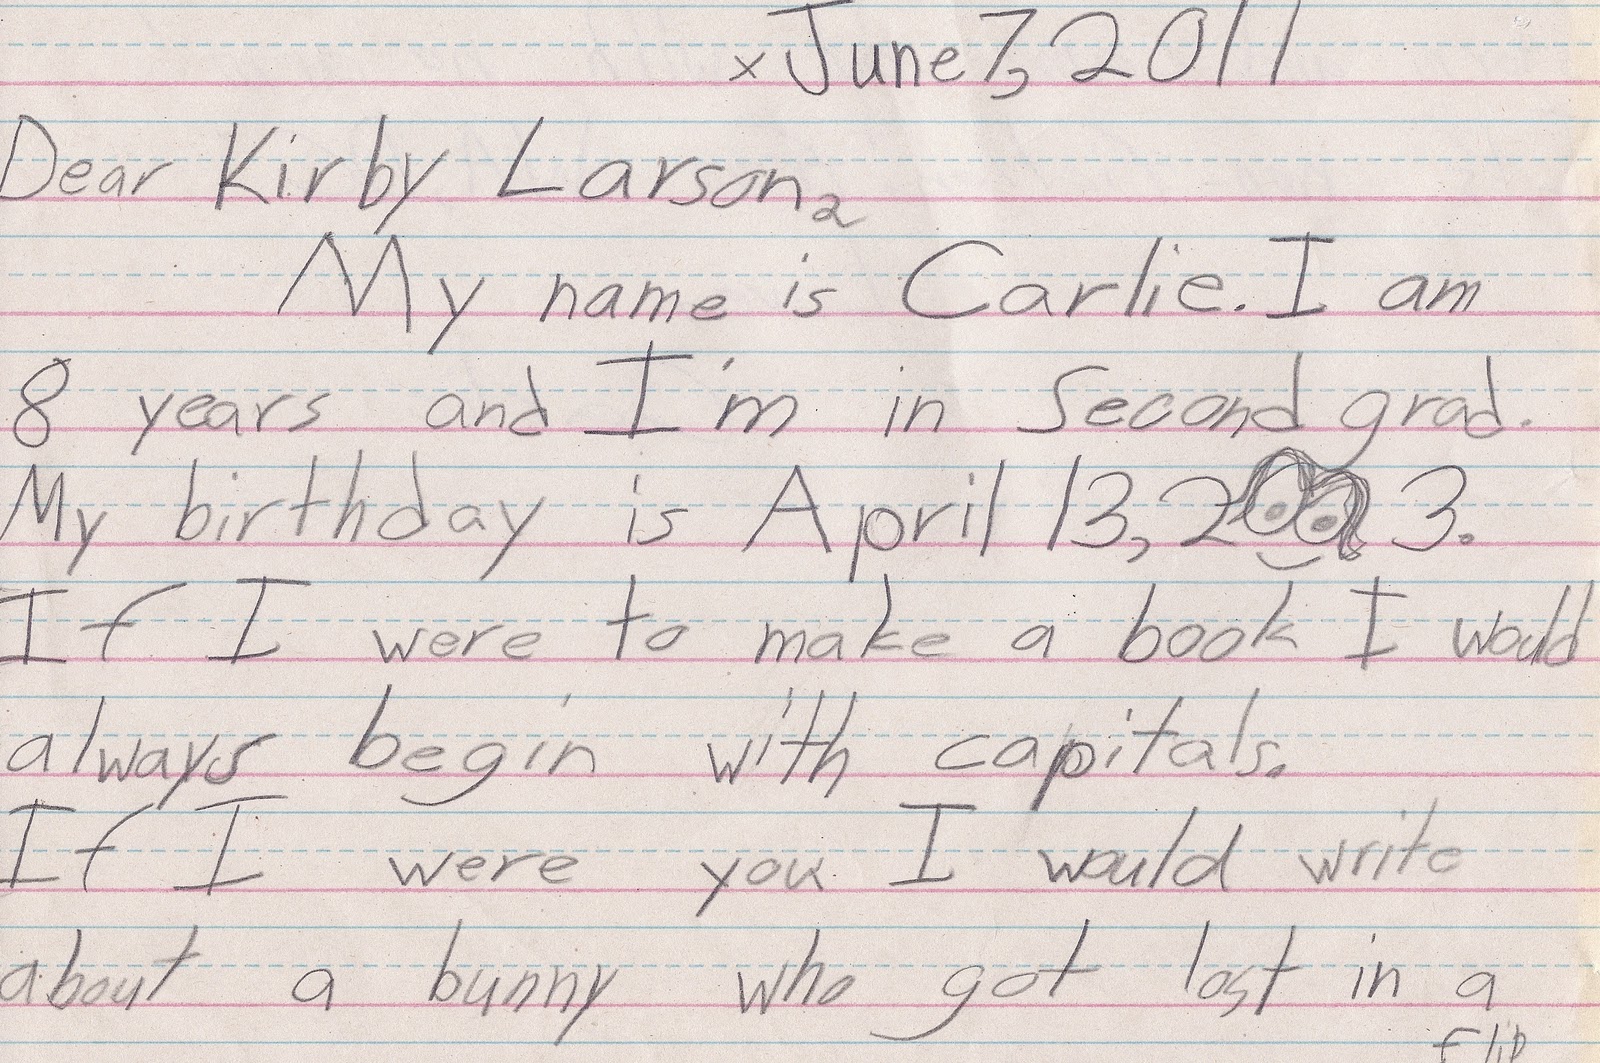 x June 7, 2011
Dear Kirby Larson,
My name is Carlie. I am
8 years and I'm in Second grad.
My birthday is April 13, 2003.
If I were to make a book I would
always begin with capitals.
If I were you I would write
about a bunny who got lost in a
Flip